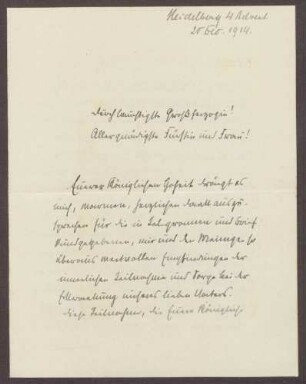 Heidelberg 4 Advent
20 Dez. 1914.
Durchlauchtigste Großherzogin!
Allergnädigste Fürstin und Frau!
Euerer Königlichen Hoheit drängt es
mich, herzlichen Dank auszu-
sprechen für die in Telegramm und Brief
mir und den Meinigen so
überaus wertvollen Empfindungen der
Teilnahme und Sorge bei der
Erkrankung unseres lieben Vaters.
Diese Teilnahme, die Euere Königliche